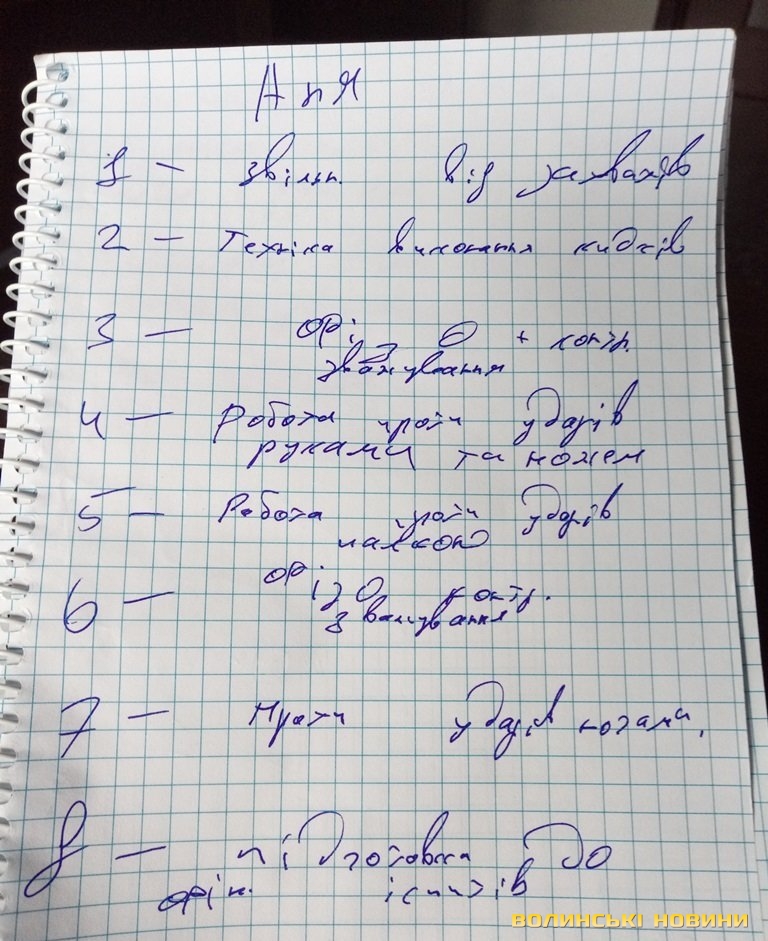 Аня
1 — звільн. від захватів
2 — Техніка виконання кидків
3 — ОРі з О + контр.
зважування
4 — Робота проти ударів
руками та ножем
5 — Робота проти ударів
палкою
6 — ОРі з О контр.
зважування
7 — Проти ударів ногами,
8 — підготовка до
орін. іспитів
ВОЛИНСЬКІ НОВИНИ